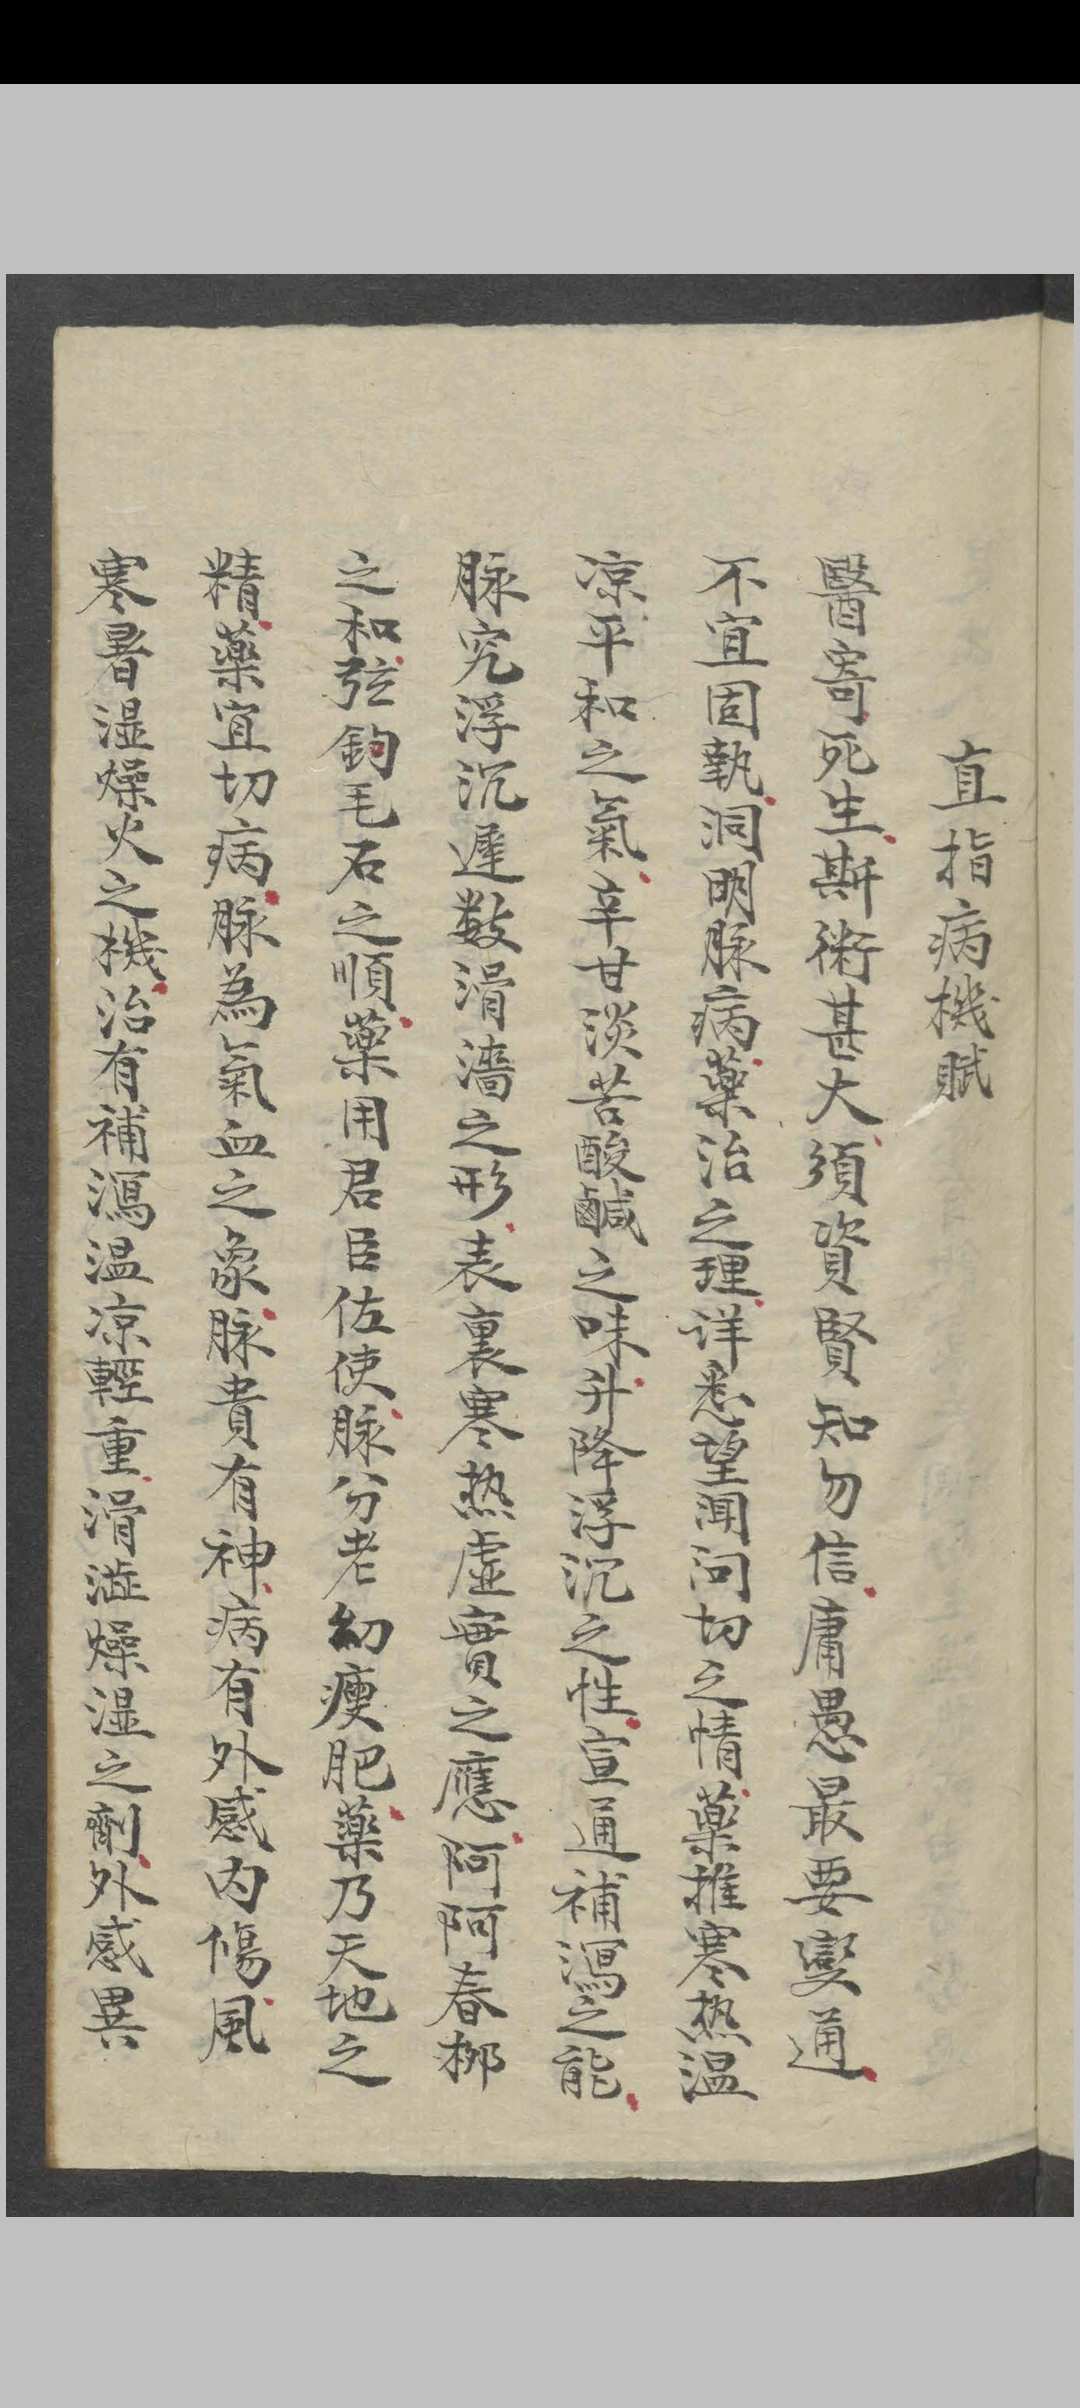 直指病機賦
醫寄死生斯術甚大須資賢知勿信庸愚最要變通
不宜固執洞明脉病藥治之理详悉望闻问切之情藥推寒热温
凉平和之氣辛甘淡苦酸鹹之味升降浮沉之性宣通補瀉之能
脉究浮沉遲数滑濇之形表裏寒热虛實之應阿阿春栁
之和弦鈎毛石之順藥用君臣佐使脉分老幼瘦肥藥乃天地之
精藥宜切病脉為氣血之象脉貴有神病有外感内傷風
寒暑湿燥火之機治有補瀉温凉輕重滑澁燥湿之劑外感異